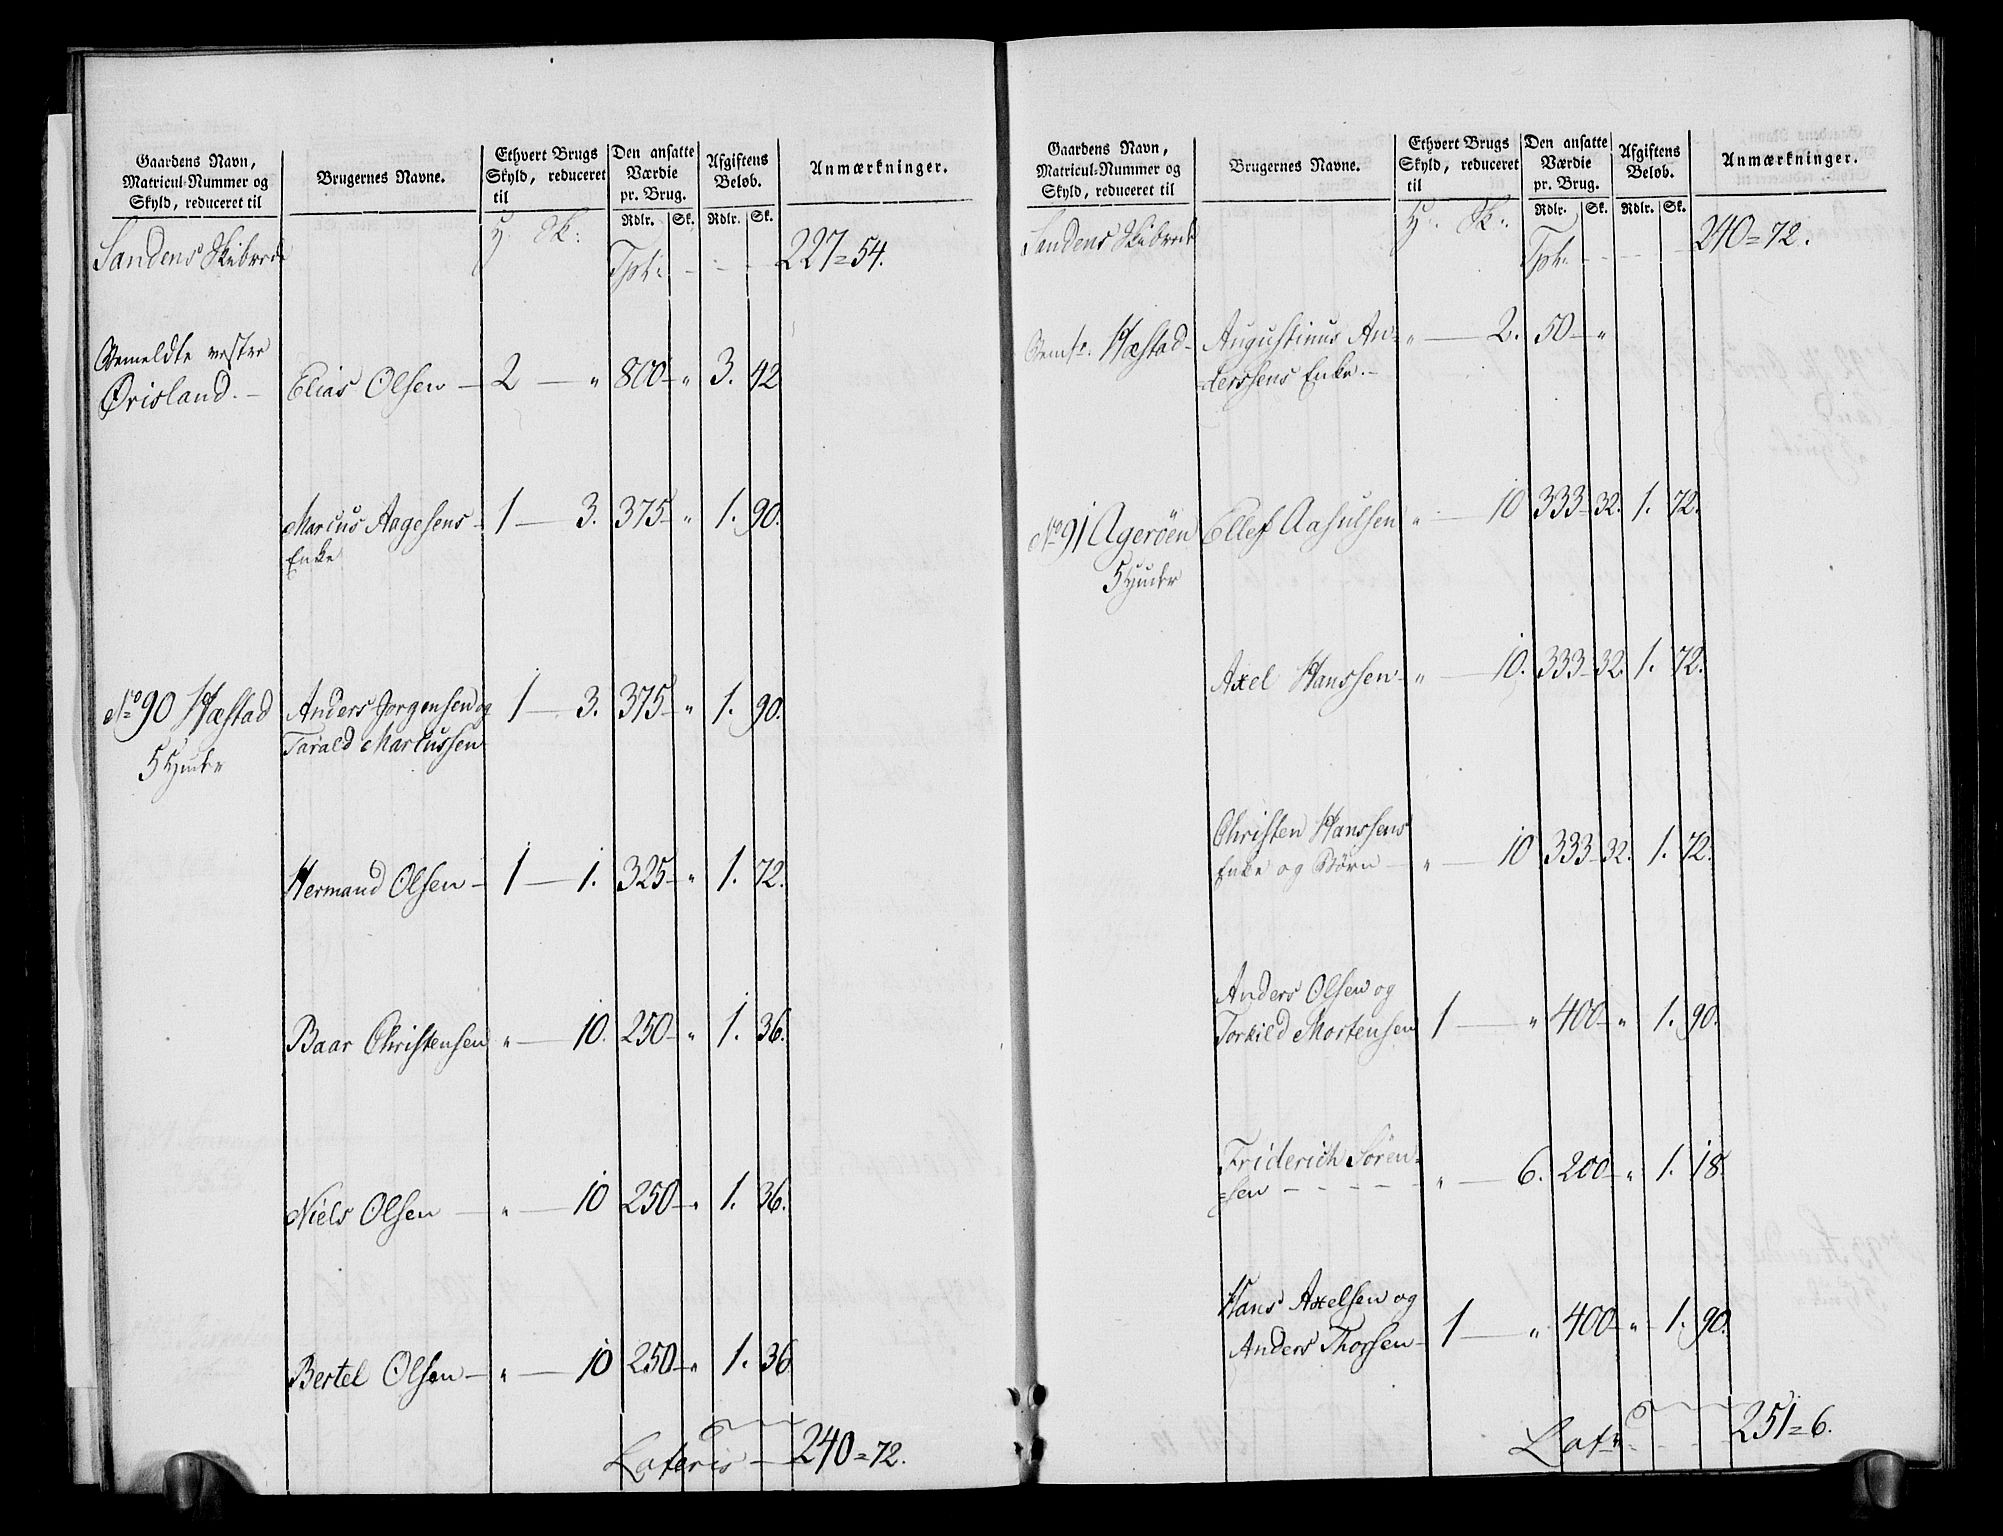 Gaardens Navn,
Matricul-Nummer og
Skyld, reduceret til
Brugernes Navne.
Ethvert Brugs
Skyld, reduceret
til
Den ansatte
Værdie
pr. Brug.
Afgiftens
Beløb.
Anmærkninger.
Rdlr. Sk. Rdlr. Sk.
Sandens Skibrede H. Sk: Tpt: 227=54.
Bemeldte vestre
Örisland. Elias Olsen 2 " 800 " 3. 42
Marcus Aagesens 1 3. 375 " 1. 90.
Enke
No 90 Hæstad Anders Jörgensen og 1 3. 375 " 1. 90.
5 Huder Tarald Marcussen
Hermand Olsen 1 1. 325 " 1. 72.
Baar Christensen " 10. 250 " 1. 36.
Niels Olsen " 10 250 " 1. 36.
Bertel Olsen " 10 250 " 1. 36
Lateris 240=72.
Gaardens Navn,
Matricul-Nummer og
Skyld, reduceret til
Brugernes Navne.
Ethvert Brugs
Skyld, reduceret
til
Den ansatte
Værdie
pr. Brug.
Afgiftens
Beløb.
Anmærkninger.
Rdlr. Sk. Rdlr. Sk.
Sandens Skibrede H. Sk: Tpt: 240=72.
Bemte. Hæstad Augustinus An= " 2. 50 "
derssens Enke.
No 91 Agerøen Ellef Aasulsen " 10 333 32. 1. 72.
5 Huder
Axel Hanssen " 10. 333 32. 1. 72.
Christen Hanssens
Enke og Børn " 10 333 32. 1. 72.
Anders Olsen og
Torkild Mortensen 1 " 400 " 1. 90.
Friderich Sören=
=sen " 6. 200 " 1. 18.
Hans Axelsen og
Anders Thorsen 1 " 400 " 1. 90.
Lats: 251=6.